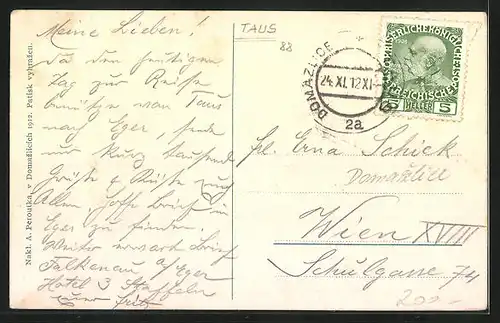 Meine Lieben!
Da den heutigen
Tag zur Reise
benütze von Taus
nach Eger, sende
nur kurz tausend
Grüße & Küsse
Allen hoffe Brief in
Eger zu finden.
Weiter erwart Brief
Falkenau a/Eger
Hotel 3 Staffeln
Nakl. A. Peroutka, v Domažlicích 1912. Patisk vyhražen.
TAUS
88
DOMAŽLICE
24.XI.12 XI-
2a
1908
5 HELLER 5
Frl. Erna Schick
Domažlice
Wien XVIII
Schulgasse 74
200.-